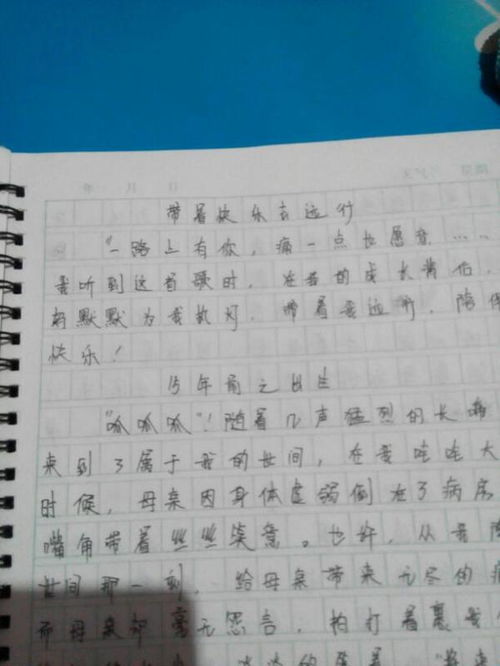 年 月 日 天气 星期
带着快乐去远行
“一路上有你，痛一点也愿意……
我听到这首歌时，在我的成长背后，
默默为我执灯，带着我远行，陪伴
快乐！
15年前之出生
“呱呱呱”！随着几声猛烈的长啼
来到了属于我的世间，在我哇哇大
时候，母亲因身体虚弱倒在了病房
嘴角带着些些笑意。也许，从我降
世间那一刻，给母亲带来无尽的痛
而母亲却毫无怨言，拍打着裹我
淡淡的